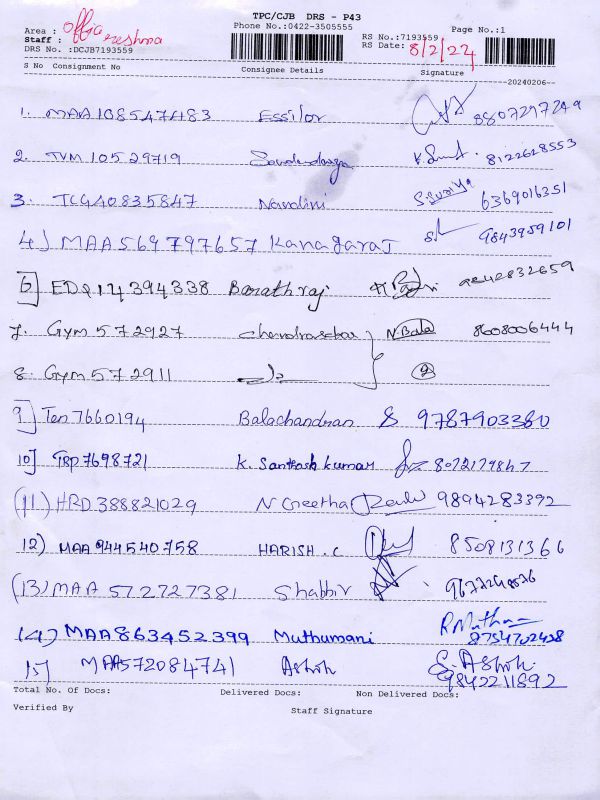 TPC/CJB DRS - P43
Phone No.:0422-3505555
Page No.:1
Area : Office
Staff : Reshma
RS No.:7193559
DRS No. :DCJB7193559
RS Date: 8/2/24
S No Consignment No Consignee Details Signature
20240206
1. MAA108547483 Essilor 8807297249
2. TVM 10529719 8122628553
3. TCG40835847 Nandini 6369016351
4) MAA569797657 Kanagaraj 9843959101
6] EDQ14394338 Barathraj
7. Gym 572927 Chandrasekar N.Bala 8608006444
8. Gym 572911 2
9] Ten7660194 Balachandran 9787903380
10] TBP7698721 K. Santhosh kumar
(11) HRD388821029 N Geetha 9894283392
12) MAA944540758 HARISH.C 8508131366
(13) MAA572727381 Shabbir
14) MAA863452399 Muthumani
15) MAA572084741 Ashok S. Ashok
9842211892
Total No. Of Docs: Delivered Docs: Non Delivered Docs:
Verified By Staff Signature